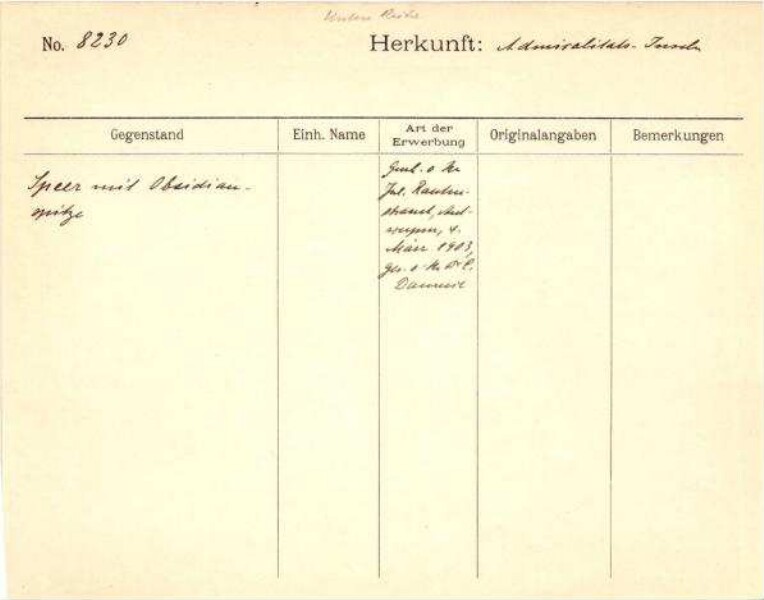 Untere Reihe
No. 8230 Herkunft: Admiralitäts-Inseln
Gegenstand Einh. Name Art der Erwerbung Originalangaben Bemerkungen
Speer mit Obsidian-
spitze
Jul. Rauten-
strauch, Ant-
werpen, 4.
März 1903,
ges. v.